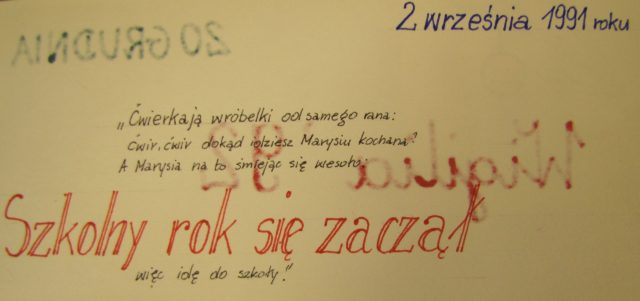 2 września 1991 roku
20 GRUDNIA
„Ćwierkają wróbelki od samego rana:
ćwir, ćwir dokąd idziesz Marysiu kochana?
A Marysia na to śmiejąc się wesoło:
Wigilia '92
Szkolny rok się zaczął
więc idę do szkoły!"